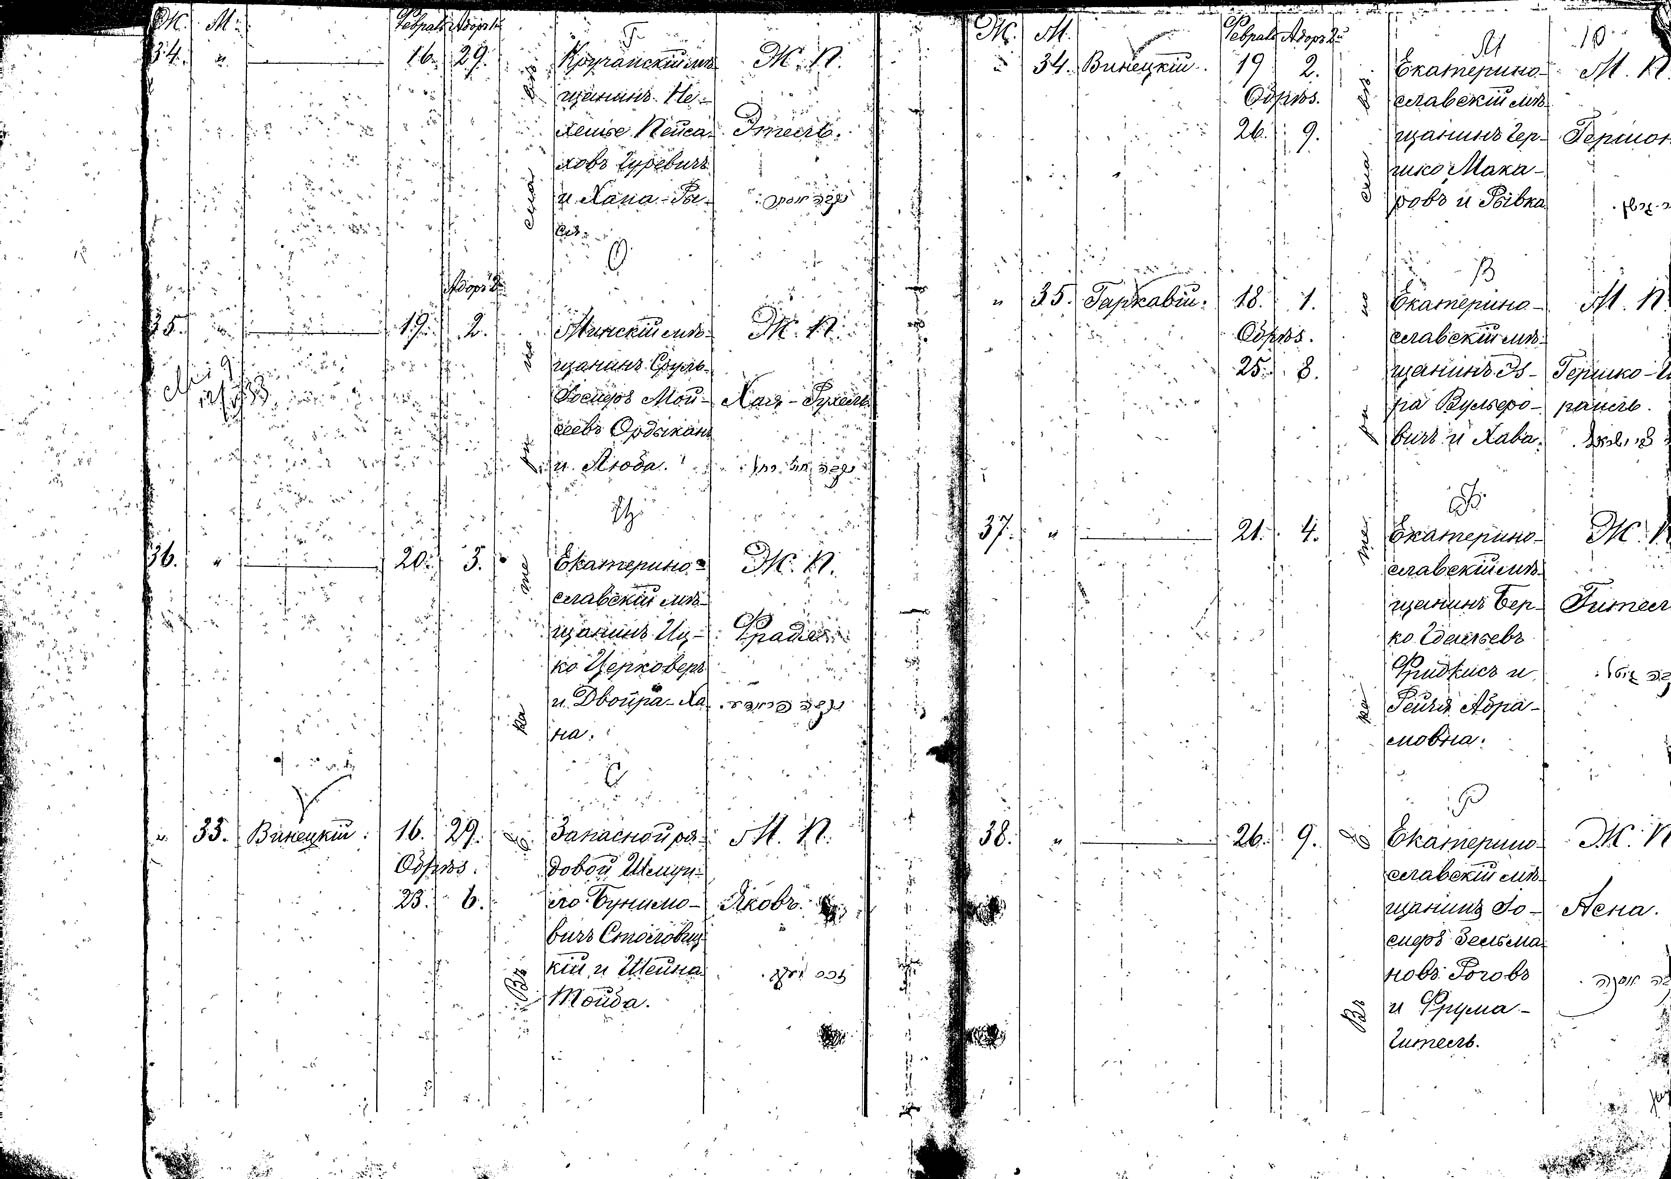 Ж. М.
34. „ 16. 29.
Г
Кручанскій мѣ-
щанинъ Не-
хемье Пейса-
ховъ Гуревичъ
и Хана-Ры-
ся.
Ж. П.
Этель.
О
Адоръ 2й
35. „ 19. 2.
Минскій мѣ-
щанинъ Сруль-
Іосифъ Мой-
сеевъ Ордыканъ
и Люба.
Ж. П.
Хая-Рухель
נקבה חי' רחל
Ц
36. „ 20. 3.
Екатерино-
славскій мѣ-
щанинъ Иц-
ко Церковеръ
и Двойра-Ха
на.
Ж. П.
Фрадля
С
„ 33. Винецкій. 16. 29.
Обрѣз.
23. 6.
Запасной ря-
довой Шмуи-
ло Бунимо-
вичъ Столовиц-
кій и Шейна
Тойба.
М. П.
Яковъ.
זכר יעקב
Ж. М. Февраль Адоръ 2й
10
М
„ 34. Винецкій. 19 2.
Обрѣз.
26. 9.
Екатерино-
славскій мѣ-
щанинъ Гер-
шко Мака-
ровъ и Рывка
М. П.
Гершон
В
„ 35. Гаркавій. 18. 1.
Обрѣз.
25. 8.
Екатерино-
славскій мѣ-
щанинъ Эз-
ра Вульфо-
вичъ и Хава.
М. П
Гершко-И
раиль.
Ф
37. „ 21. 4.
Екатерино-
славскій мѣ-
щанинъ Бер-
ко
Фридкисъ и
Рейзя Абра-
мовна.
Ж. П
Гител
Р
38. „ 26. 9.
Екатерино-
славскій мѣ-
щанинъ Іо-
сифъ Зельма
новъ Роговъ
и Фрума-
Гитель.
Ж. П
Асна.